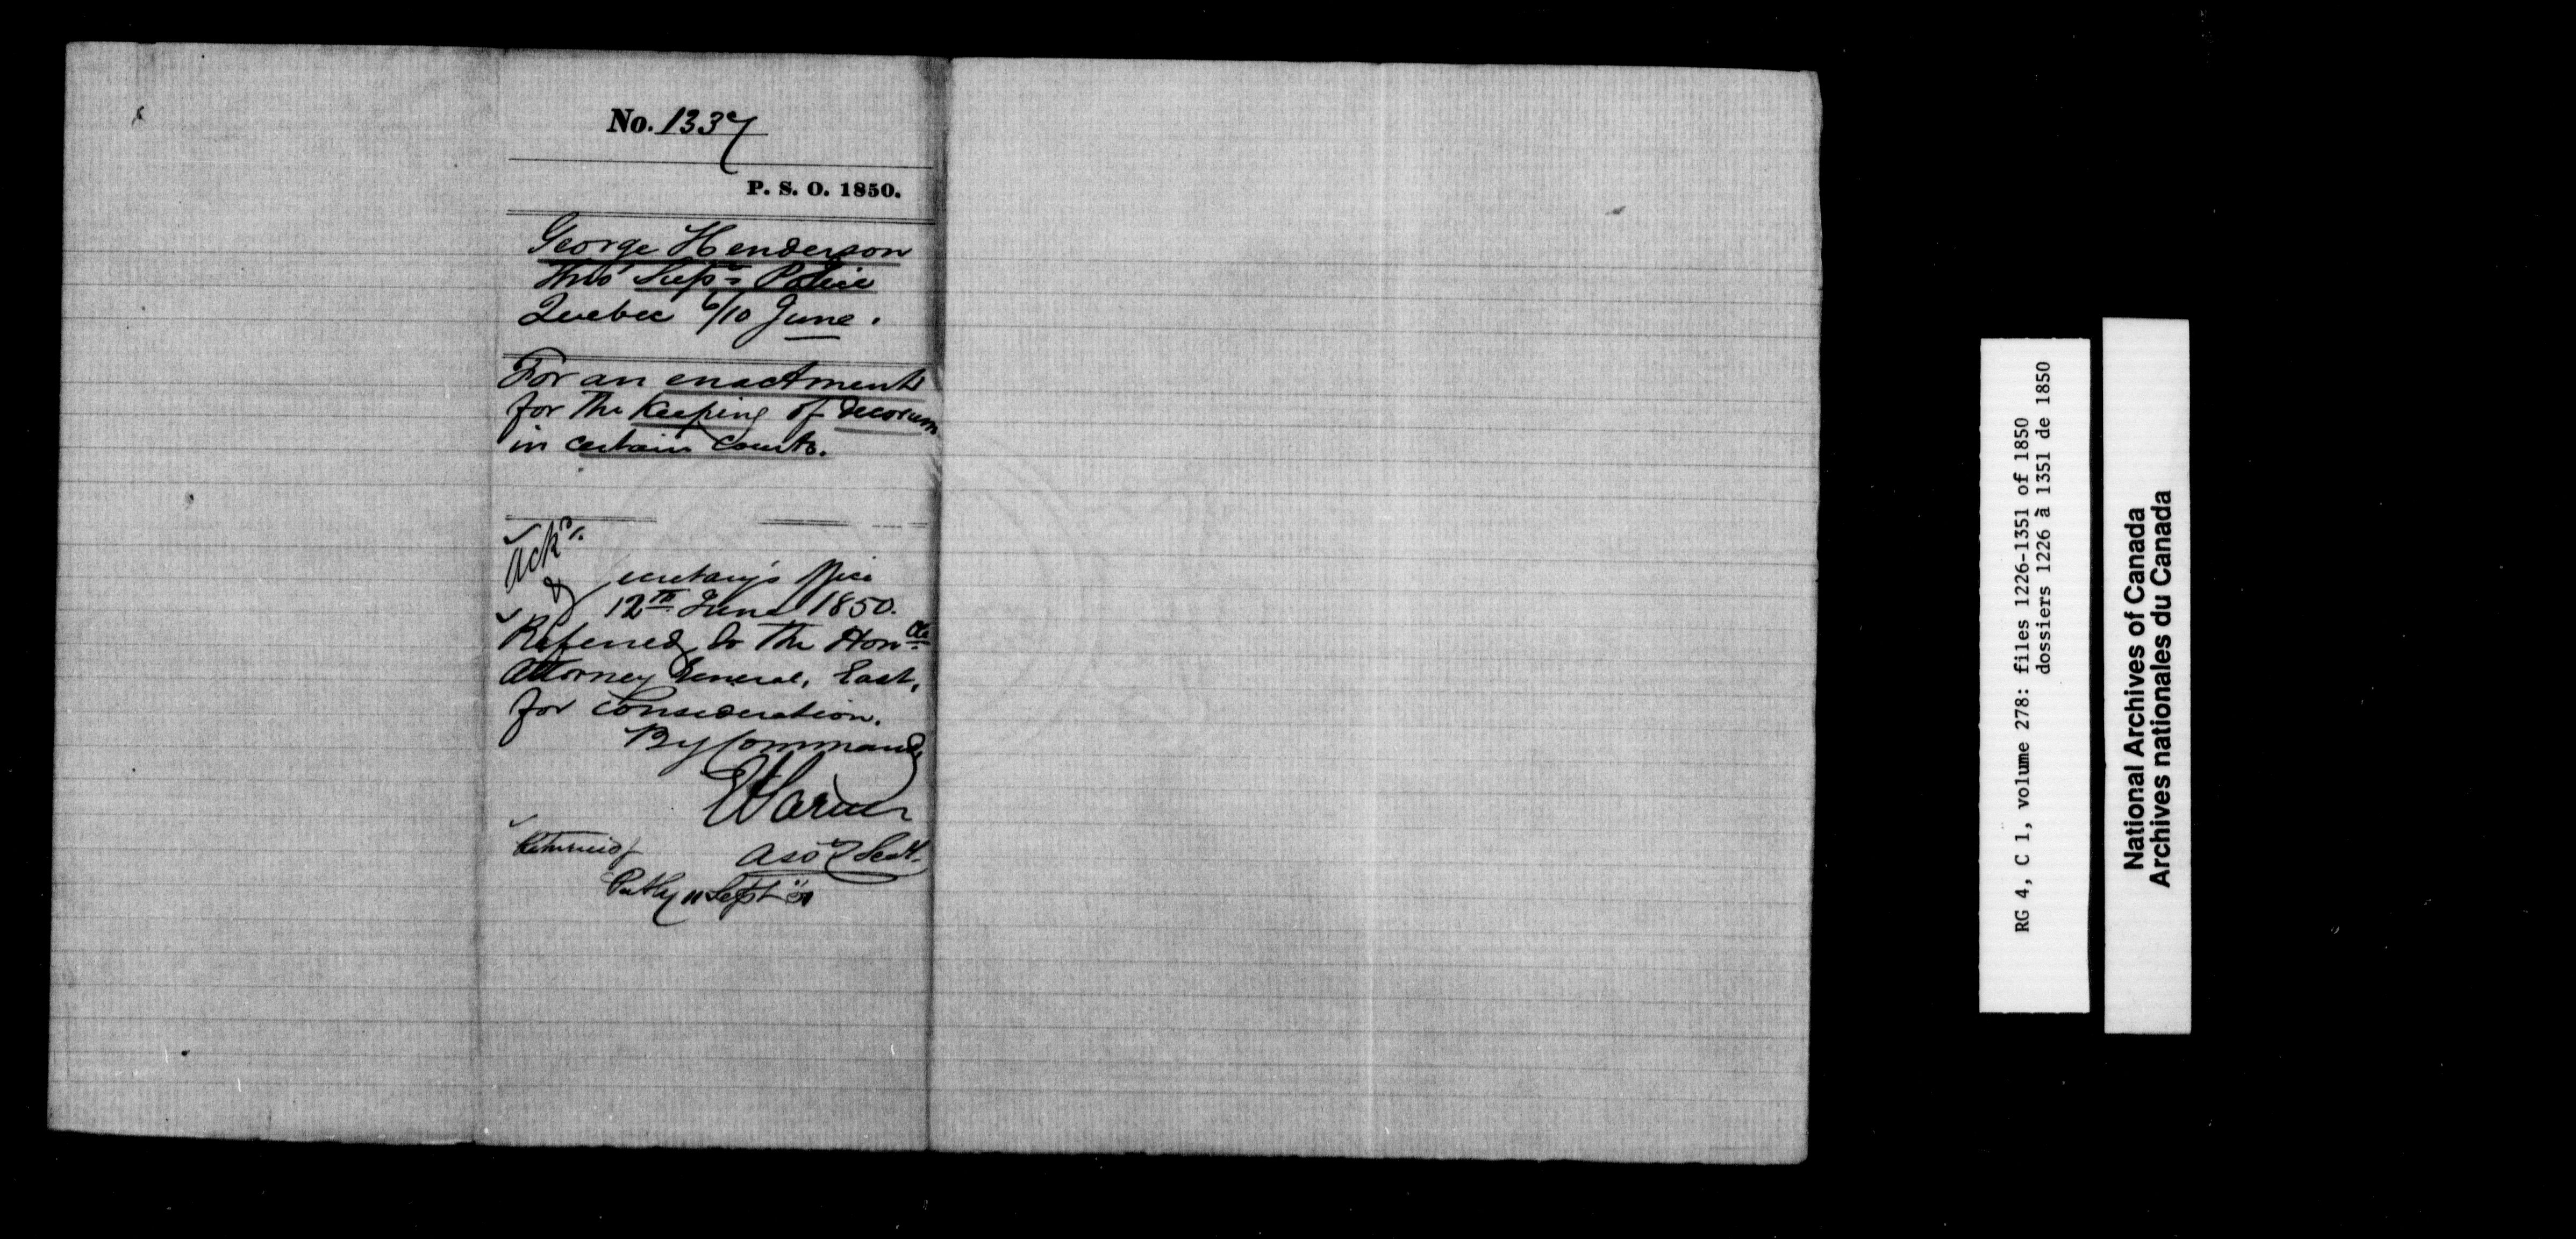 No. 1337
P. S. O. 1850.
George Henderson
Thro' Supt. Police
Quebec 6/10 June.
For an enactment
for the keeping of decorum
in certain Courts.
Ackd.
&
Secretary's Office
12th June 1850.
Referred to the Honble
Attorney General, East,
for consideration.
By Command
Returned
Asst Secy.
11 Sept
RG 4, C 1, volume 278: files 1226-1351 of 1850
dossiers 1226 à 1351 de 1850
National Archives of Canada
Archives nationales du Canada